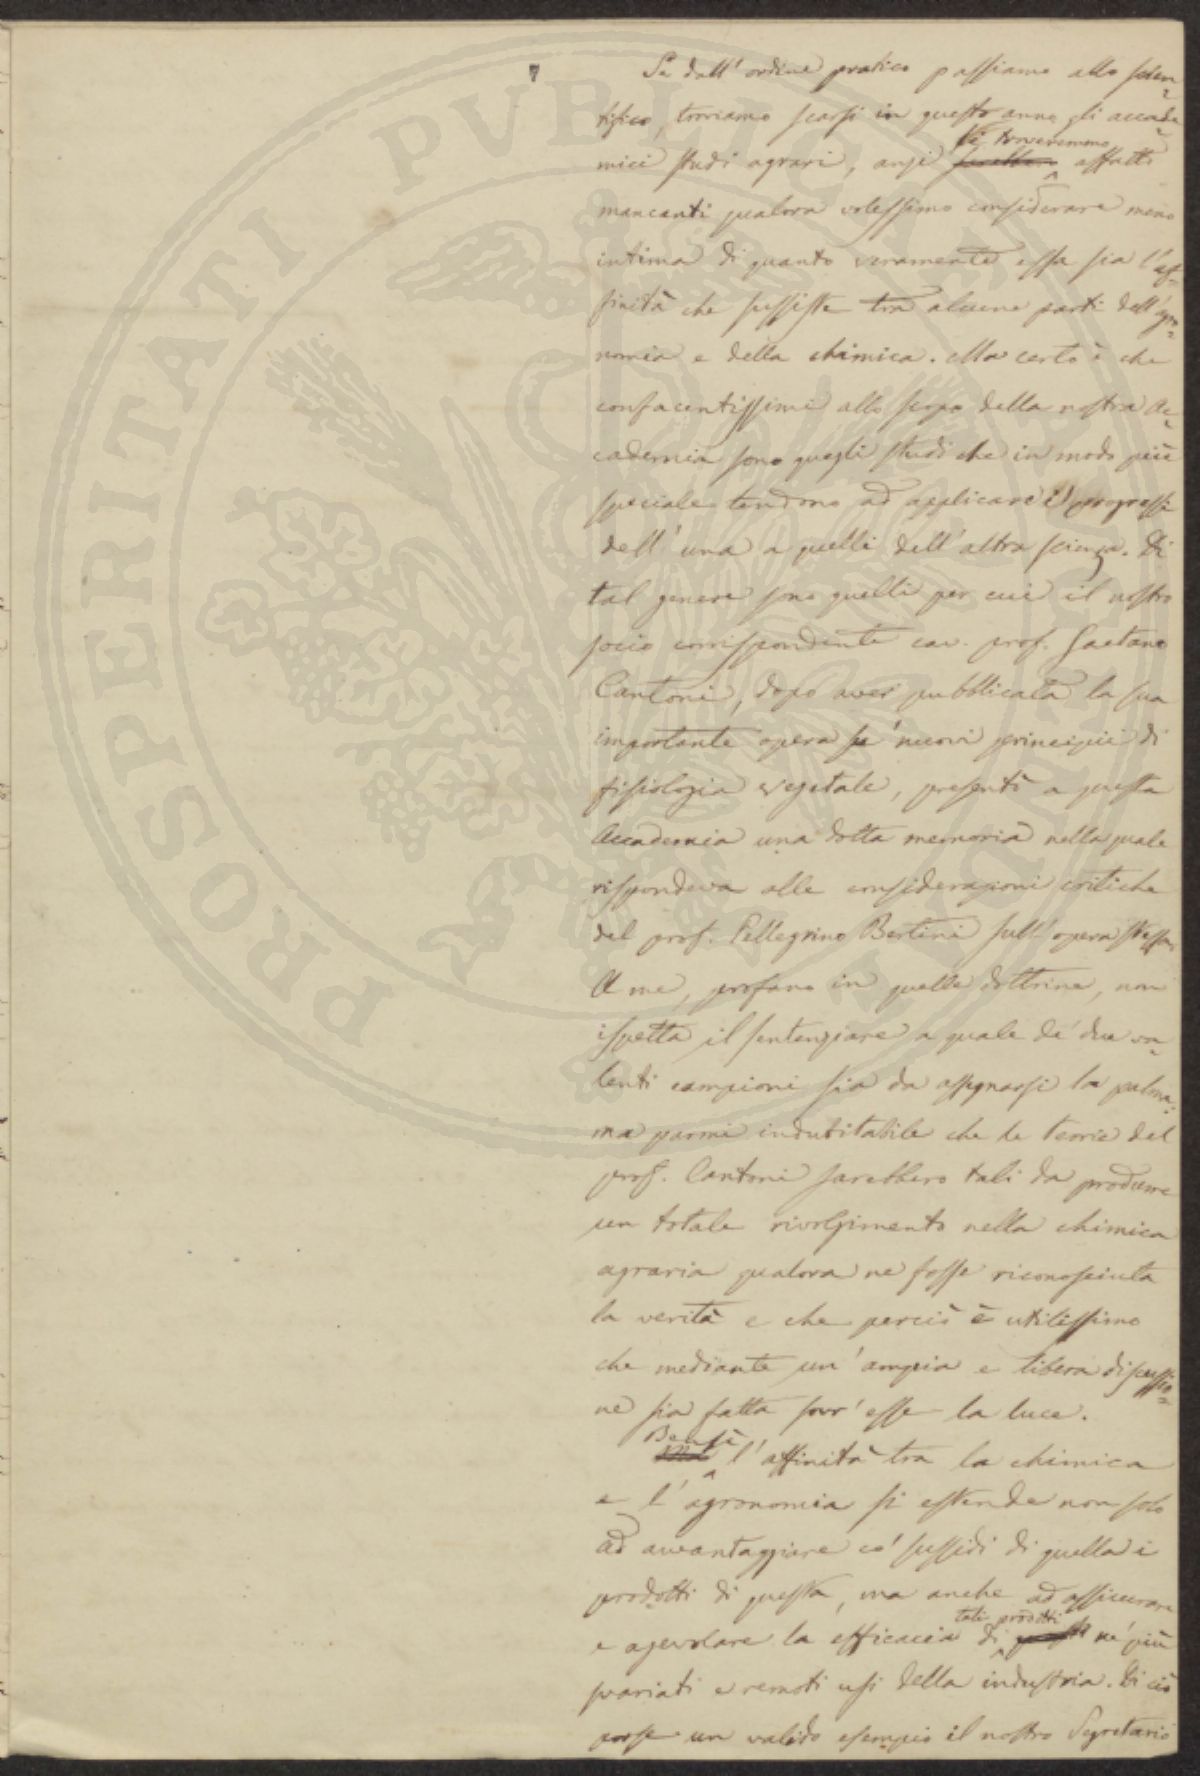 7
Se dall' ordine pratico passiamo allo scien=
tifico, troviamo scarsi in questo anno gli accade=
mici studi agrari, anzi li troveremmo affatto
mancanti qualora volessimo considerare meno
intima di quanto veramente essa sia l'af=
finità che sussiste tra alcune parti dell'agro=
nomia e della chimica. Ma certo è che
confacentissimi allo scopo della nostra Ac=
cademia sono quegli studi che in modo più
speciale tendono ad applicare i progressi
dell' una a quelli dell' altra scienza. Di
tal genere sono quelli per cui il nostro
socio corrispondente cav. prof. Gaetano
Cantoni, dopo aver pubblicata la sua
importante opera su' nuovi principii di
fisiologia vegetale, presentò a questa
Accademia una dotta memoria nella quale
rispondeva alle considerazioni critiche
del prof. Pellegrino Bertini sull' opera stessa.
A me, profano in quelle dottrine, non
ispetta il sentenziare a quale de' due va=
lenti campioni sia da assegnarsi la palma,
ma parmi indubitabile che le teorie del
prof. Cantoni sarebbero tali da produrre
un totale rivolgimento nella chimica
agraria qualora ne fosse riconosciuta
la verità e che perciò è utilissimo
che mediante un' ampia e libera discussio=
ne sia fatta sovr' esse la luce.
Bensì l' affinità tra la chimica
e l' agronomia si estende non solo
ad avvantaggiare co' sussidi di quella i
prodotti di questa, ma anche ad assicurare
e agevolare la efficacia di tali prodotti ne' più
svariati e remoti usi della industria. Di ciò
porse un valido esempio il nostro Segretario
PROSPERITATI PVBLICAE AVGENDAE